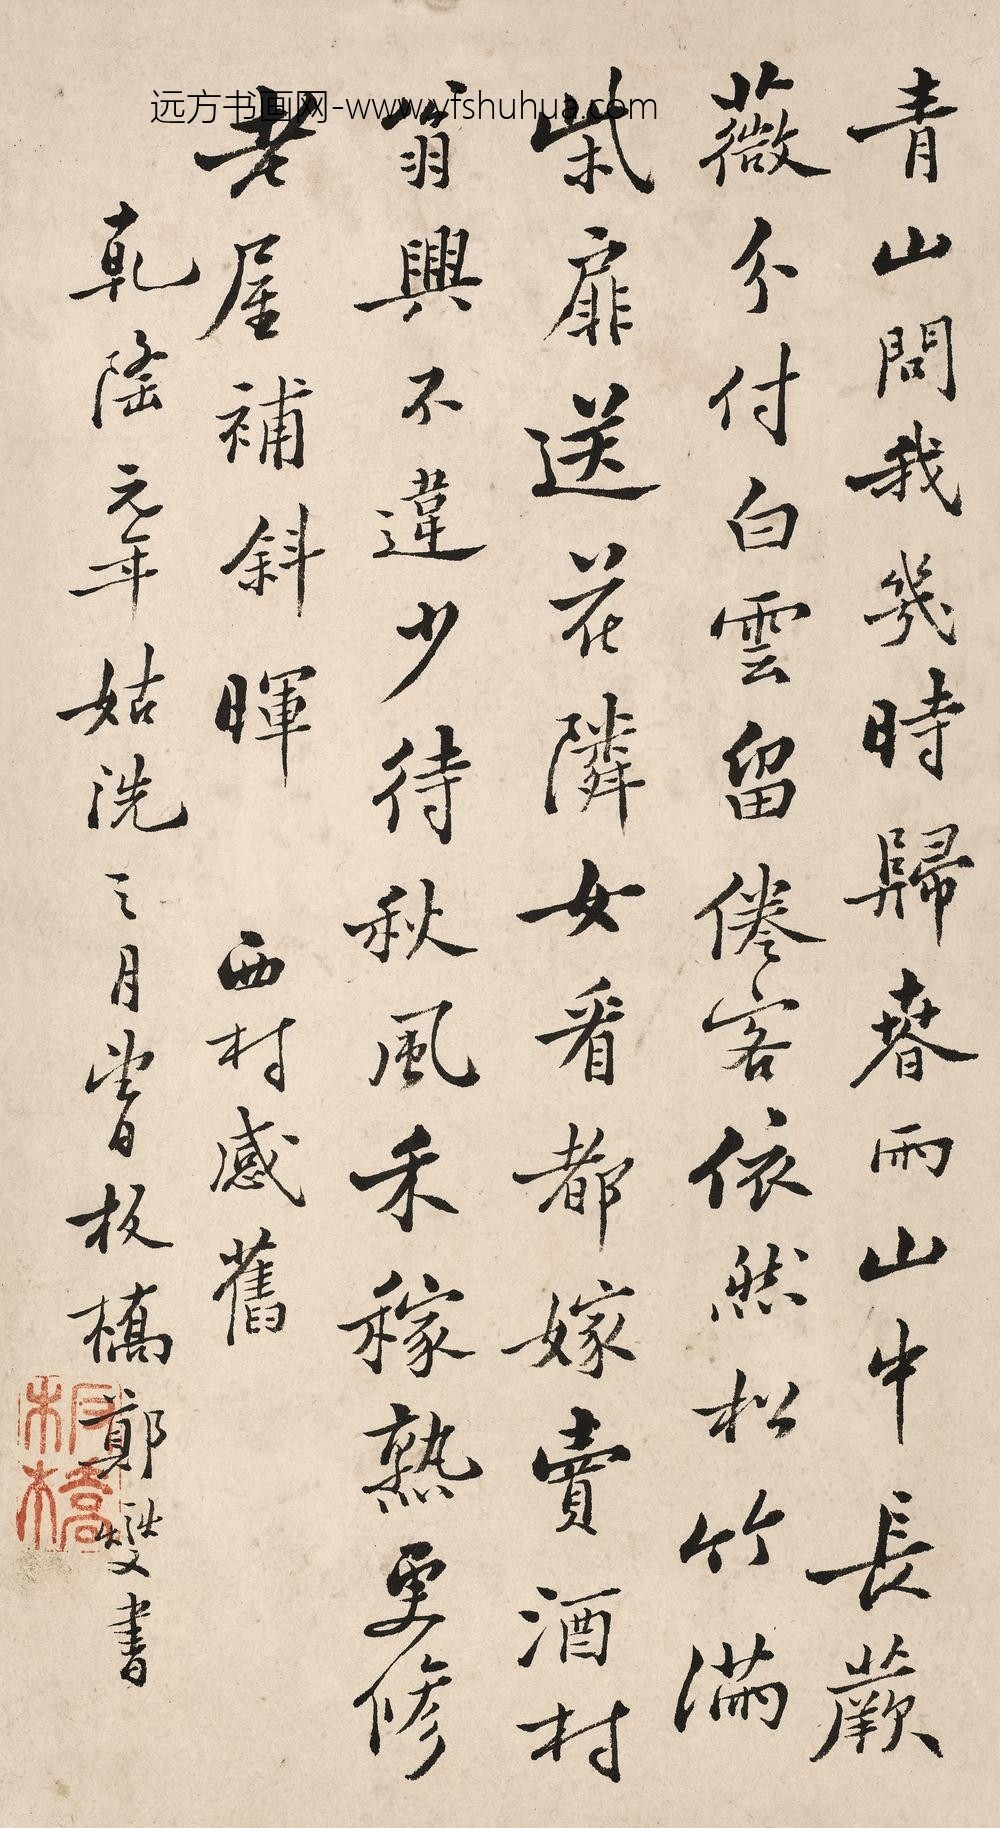 远方书画网-www.yfshuhua.com
青山問我幾時歸春雨山中長蕨
薇分付白雲留倦客依然松竹滿
柴扉送花隣女看都嫁賣酒村
翁興不違少待秋風禾稼熟更修
老屋補斜暉 西村感舊
乾隆元年姑洗之月望日板橋鄭燮書
板橋